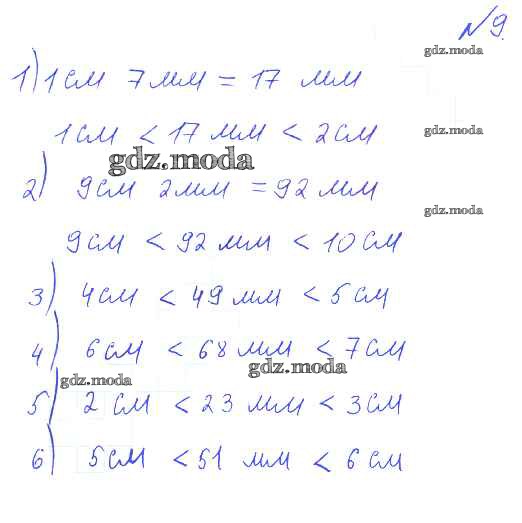 № 9.
gdz.moda
1) 1 см 7 мм = 17 мм
1 см < 17 мм < 2 см
gdz.moda
gdz.moda
2) 9 см 2 мм = 92 мм
gdz.moda
9 см < 92 мм < 10 см
3) 4 см < 49 мм < 5 см
4) 6 см < 68 мм < 7 см
gdz.moda
gdz.moda
5) 2 см < 23 мм < 3 см
6) 5 см < 51 мм < 6 см